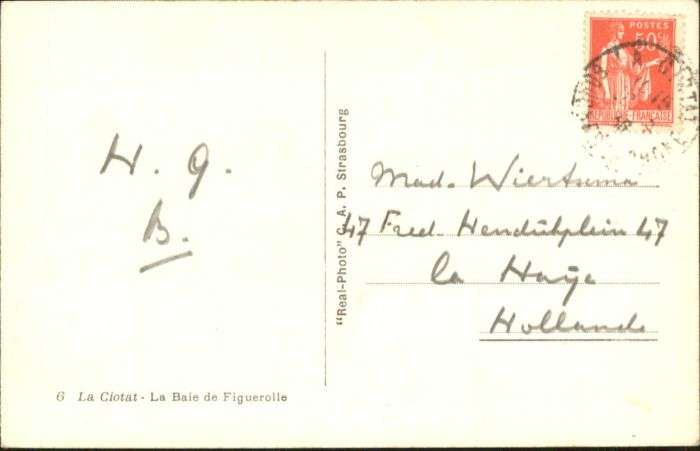 POSTES
50c
REPUBLIQUE FRANÇAISE
LA CIOTAT
H. G.
B.
Mad. Wiertsema
47 Fred. Hendrikplein 47
la Haije
Hollande
"Real-Photo" C. A. P. Strasbourg
6 La Ciotat - La Baie de Figuerolle